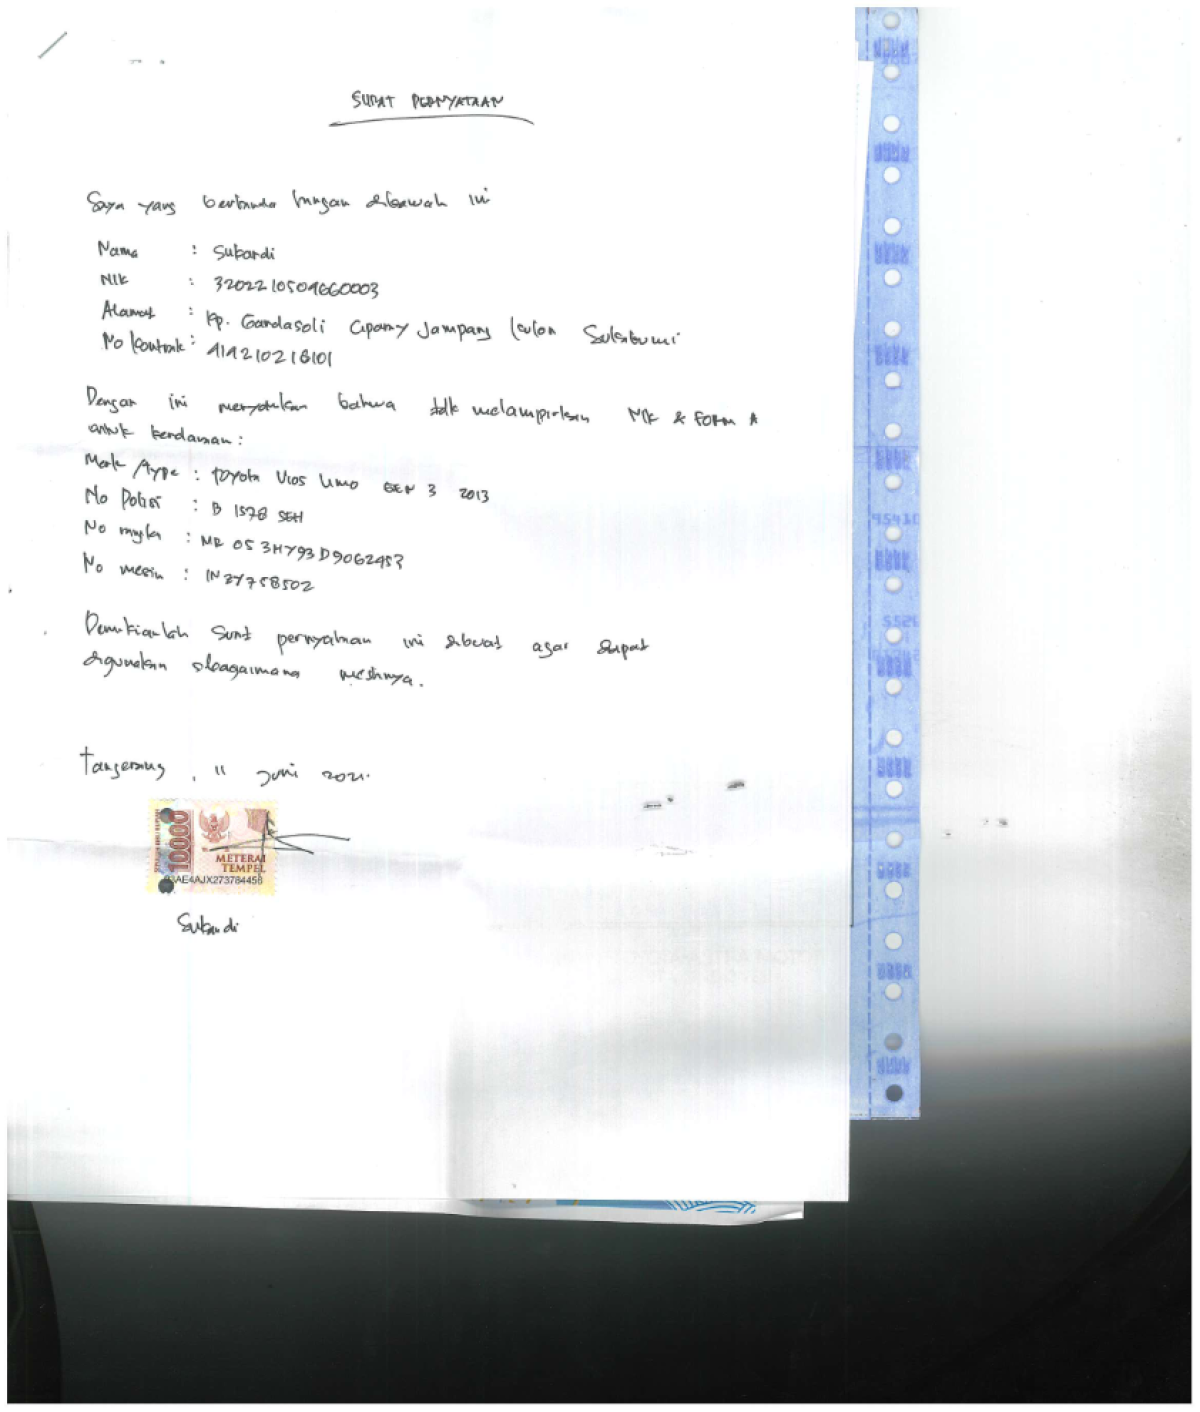 SURAT PERNYATAAN
Saya yang bertanda tangan dibawah ini
Nama : Sukandi
NIK : 3202210509660003
Alamat : Kp. Gandasoli Jampang kulon Sukabumi
No kontrak :
Dengan ini menyatakan bahwa tdk melampirkan NIK & FORM A
untuk kendaraan :
Merk /type : Toyota Vios Limo GEN 3 2013
No Polisi : B 1578 SEH
No rangka : MR 05 3HY93D9062453
No mesin : 1NZY758502
Demikianlah surat pernyataan ini dibuat agar dapat
digunakan sbagaimana mestinya.
Tangerang, 11 Juni 2021.
10000
METERAI
TEMPEL
AE4AJX273784458
Sukandi